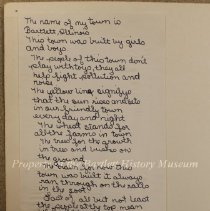 The name of my town is
Bartlett, Illinois
This town was built by girls
and boys
The people of this town don't
play with toys, they all
help fight pollution and
noise
The yellow line signifys
that the sun rises and sets
in our friendly town
every day and night
The wheat stands for
all the farms in town
The tree for the growth
in trees and bushes on
the ground
The train for how this
town was built it always
ran through on the rails
in the soot
Last of all but not least
the people at the top mean
Property of the Bartlett History Museum